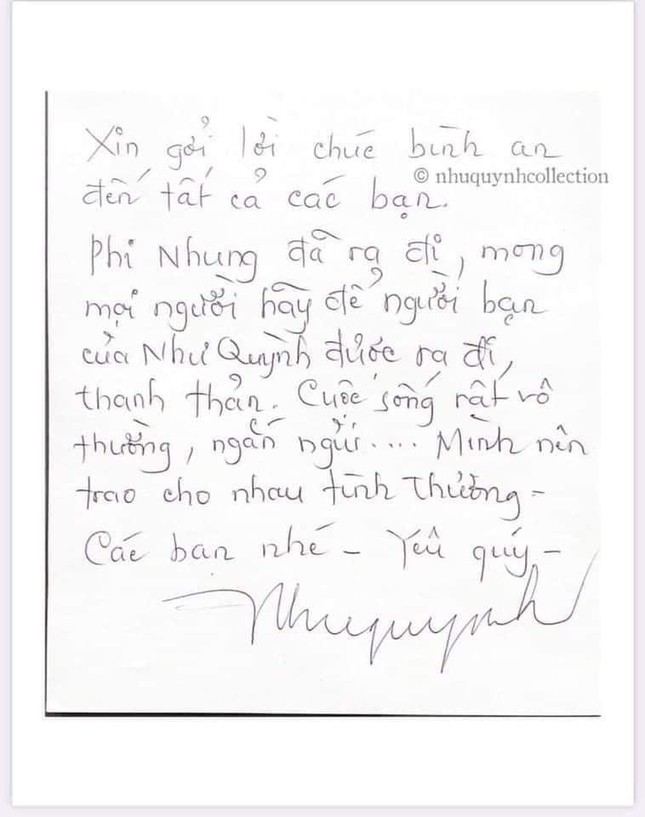 Xin gởi lời chúc bình an
© nhuquynhcollection
đến tất cả các bạn.
Phi Nhung đã ra đi, mong
mọi người hãy để người bạn
của Như Quỳnh được ra đi,
thanh thản. Cuộc sống rất vô
thường, ngắn ngủi.... Mình nên
trao cho nhau tình thương -
Các bạn nhé - Yêu quý -
Nhuquynh